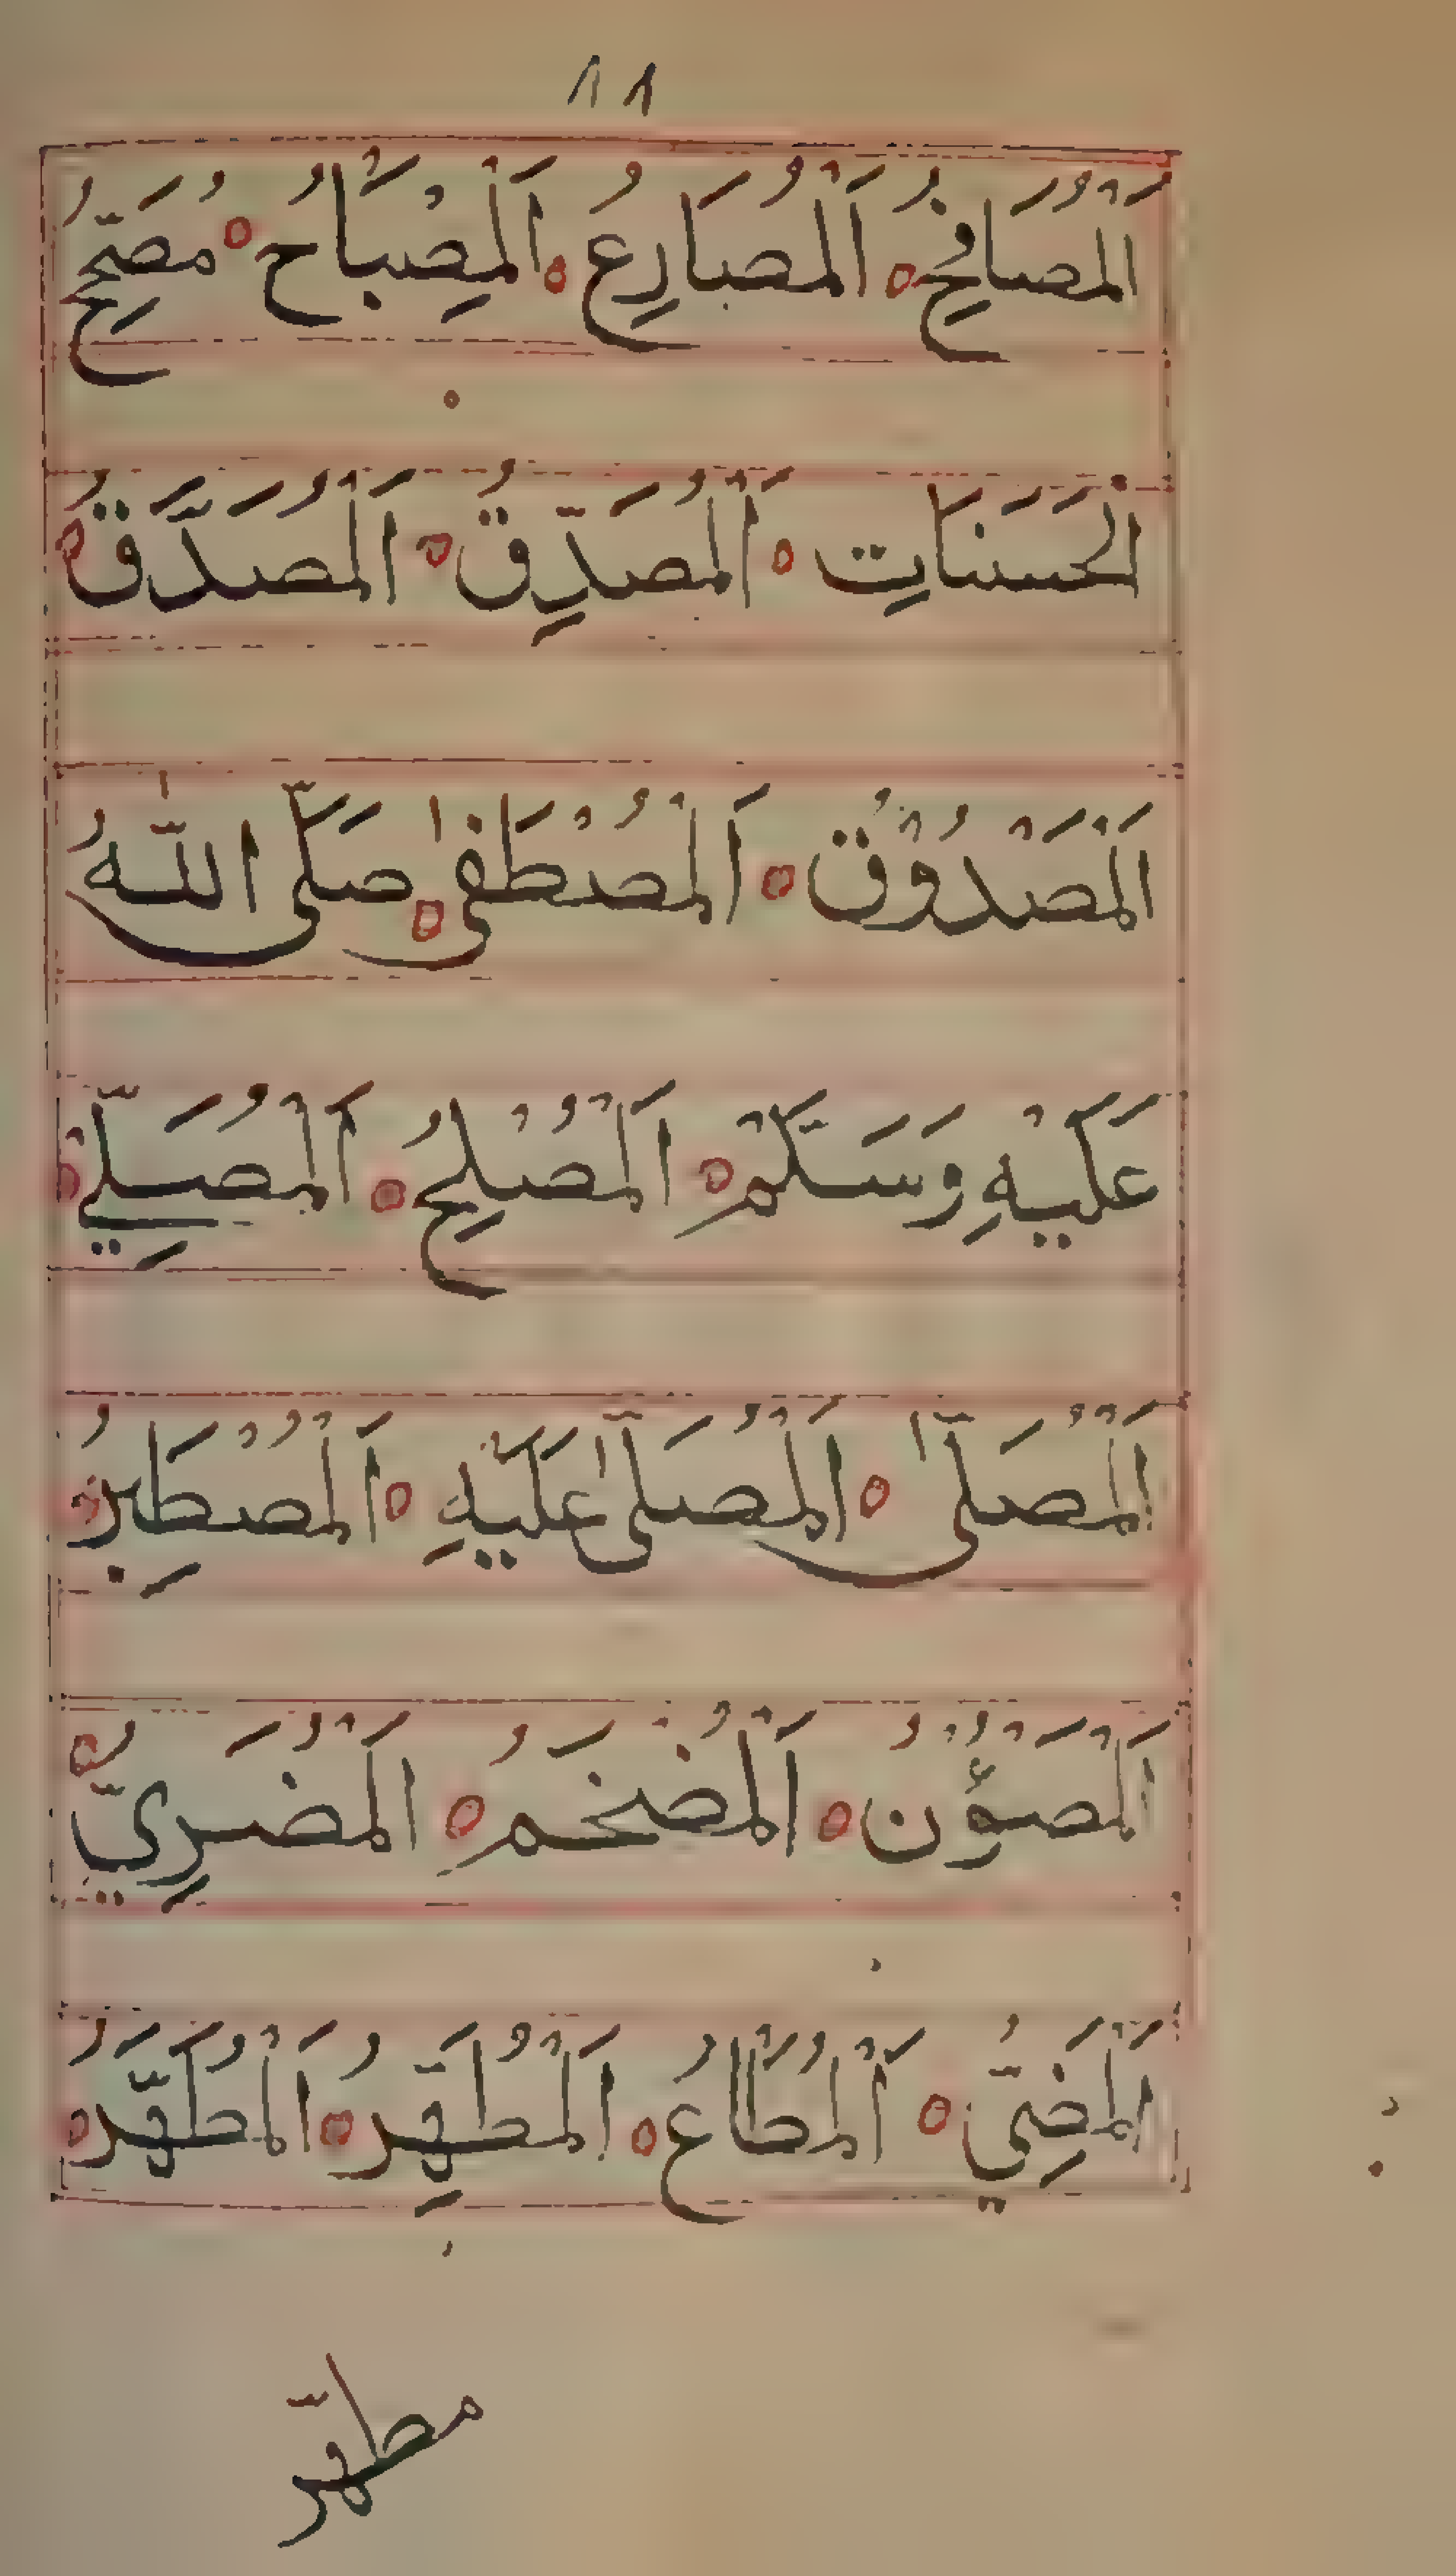 ٨٨
اَلْمُصَافِحُ اَلْمُصَارِعُ اَلْمِصْبَاحُ مُصَحِّحُ
الْحَسَنَاتِ اَلْمُصَدِّقُ اَلْمُصَدَّقُ
اَلْمَصْدُوْقُ اَلْمُصْطَفٰى صَلَّى اللّٰهُ
عَلَيْهِ وَسَلَّمَ اَلْمُصْلِحُ اَلْمُصَلِّيْ
اَلْمُصَلّٰى اَلْمُصَلّٰى عَلَيْهِ اَلْمُصْطَبِرُ
اَلْمَصْؤُنُ اَلْمُضْخَمُ اَلْمُضَرِيُّ
اَلْمَضِيُّ اَلْمُطَاعُ اَلْمُطَهِّرُ اَلْمُطَهَّرُ
مطهّر